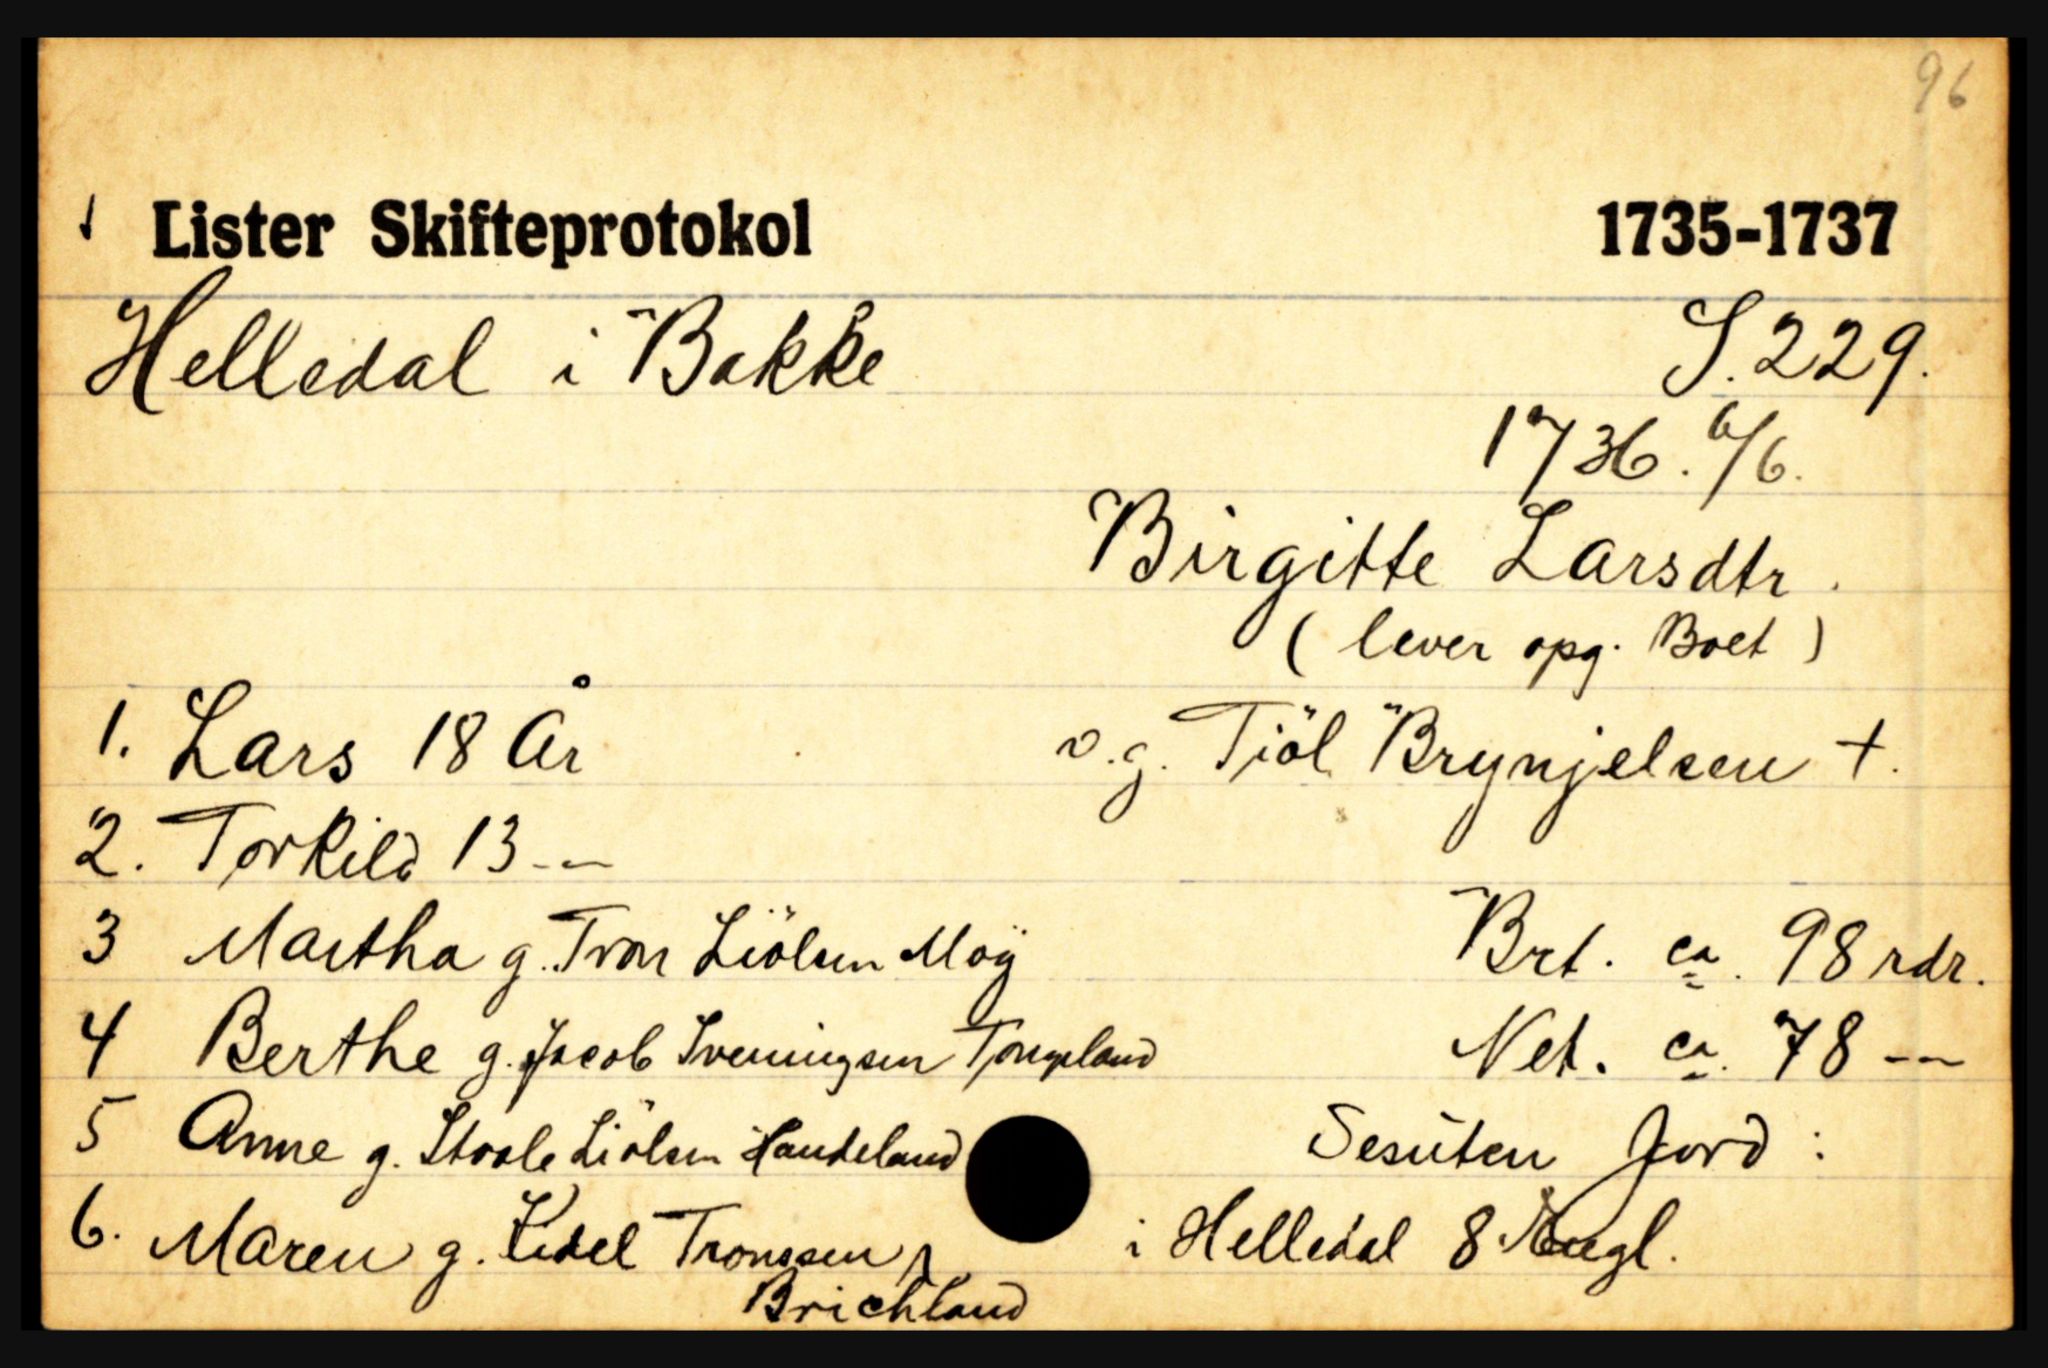 96
Lister Skifteprotokol 1735-1737
Helledal i Bakke S. 229.
1736. 6/6.
Birgitte Larsdtr.
( lever opg. Boet )
1. Lars 18 År v.g. Tiöl Brynjelsen +.
2. Torkild 13 -"-
3 Martha g. Tron Liölsen Moÿ Brt. ca. 98 rdr.
4 Berthe g. Jacob Sveningsen Net. ca. 78 -"-
5 Anne g. Staale Liölsen Haudeland Desüten Jord :
6. Maren g. Kidel Tronssen i Helledal 8 Engl.
Brichland